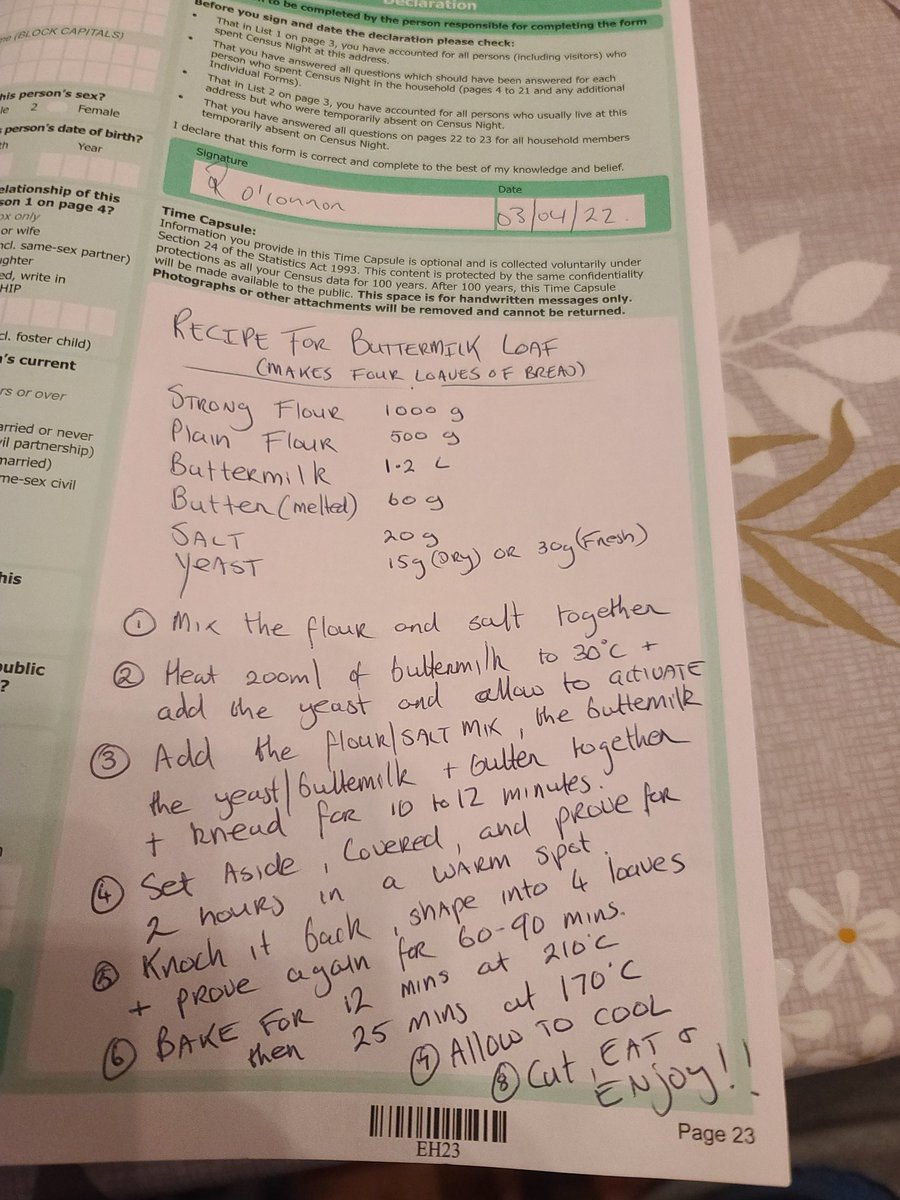 Declaration
to be completed by the person responsible for completing the form
Before you sign and date the declaration please check:
• That in List 1 on page 3, you have accounted for all persons (including visitors) who
spent Census Night at this address.
• That you have answered all questions which should have been answered for each
person who spent Census Night in the household (pages 4 to 21 and any additional
Individual Forms).
• That in List 2 on page 3, you have accounted for all persons who usually live at this
address but who were temporarily absent on Census Night.
• That you have answered all questions on pages 22 to 23 for all household members
temporarily absent on Census Night.
I declare that this form is correct and complete to the best of my knowledge and belief.
Signature
R O'Connor
Date
03/04/22.
Time Capsule:
Information you provide in this Time Capsule is optional and is collected voluntarily under
Section 24 of the Statistics Act 1993. This content is protected by the same confidentiality
protections as all your Census data for 100 years. After 100 years, this Time Capsule
will be made available to the public. This space is for handwritten messages only.
Photographs or other attachments will be removed and cannot be returned.
RECIPE FOR BUTTERMILK LOAF
(MAKES FOUR LOAVES OF BREAD)
STRONG FLOUR 1000 g
Plain FLOUR 500 g
Buttermilk 1.2 L
Butter (melted) 60g
SALT 20g
YEAST 15g (DRY) OR 30g (Fresh)
① Mix the flour and salt together
② Heat 200ml of buttermilk to 30°C +
add the yeast and allow to ACTIVATE
③ Add the flour/SALT MIX, the buttemilk
the yeast/buttemilk + butter together
+ knead for 10 to 12 minutes.
④ Set Aside, Covered, and prove for
2 hours in a WARM spot.
⑤ Knock it back, shape into 4 loaves
+ prove again for 60-90 mins.
⑥ BAKE FOR 12 mins at 210°C
then 25 mins at 170°C
⑦ Allow TO COOL
⑧ Cut, EAT &
ENJOY!!
EH23
Page 23
(BLOCK CAPITALS)
his person's sex?
le 2 Female
person's date of birth?
th Year
elationship of this
son 1 on page 4?
ox only
or wife
ncl. same-sex partner)
ughter
ed, write in
HIP
cl. foster child)
's current
rs or over
arried or never
vil partnership)
married)
me-sex civil
his
public
?